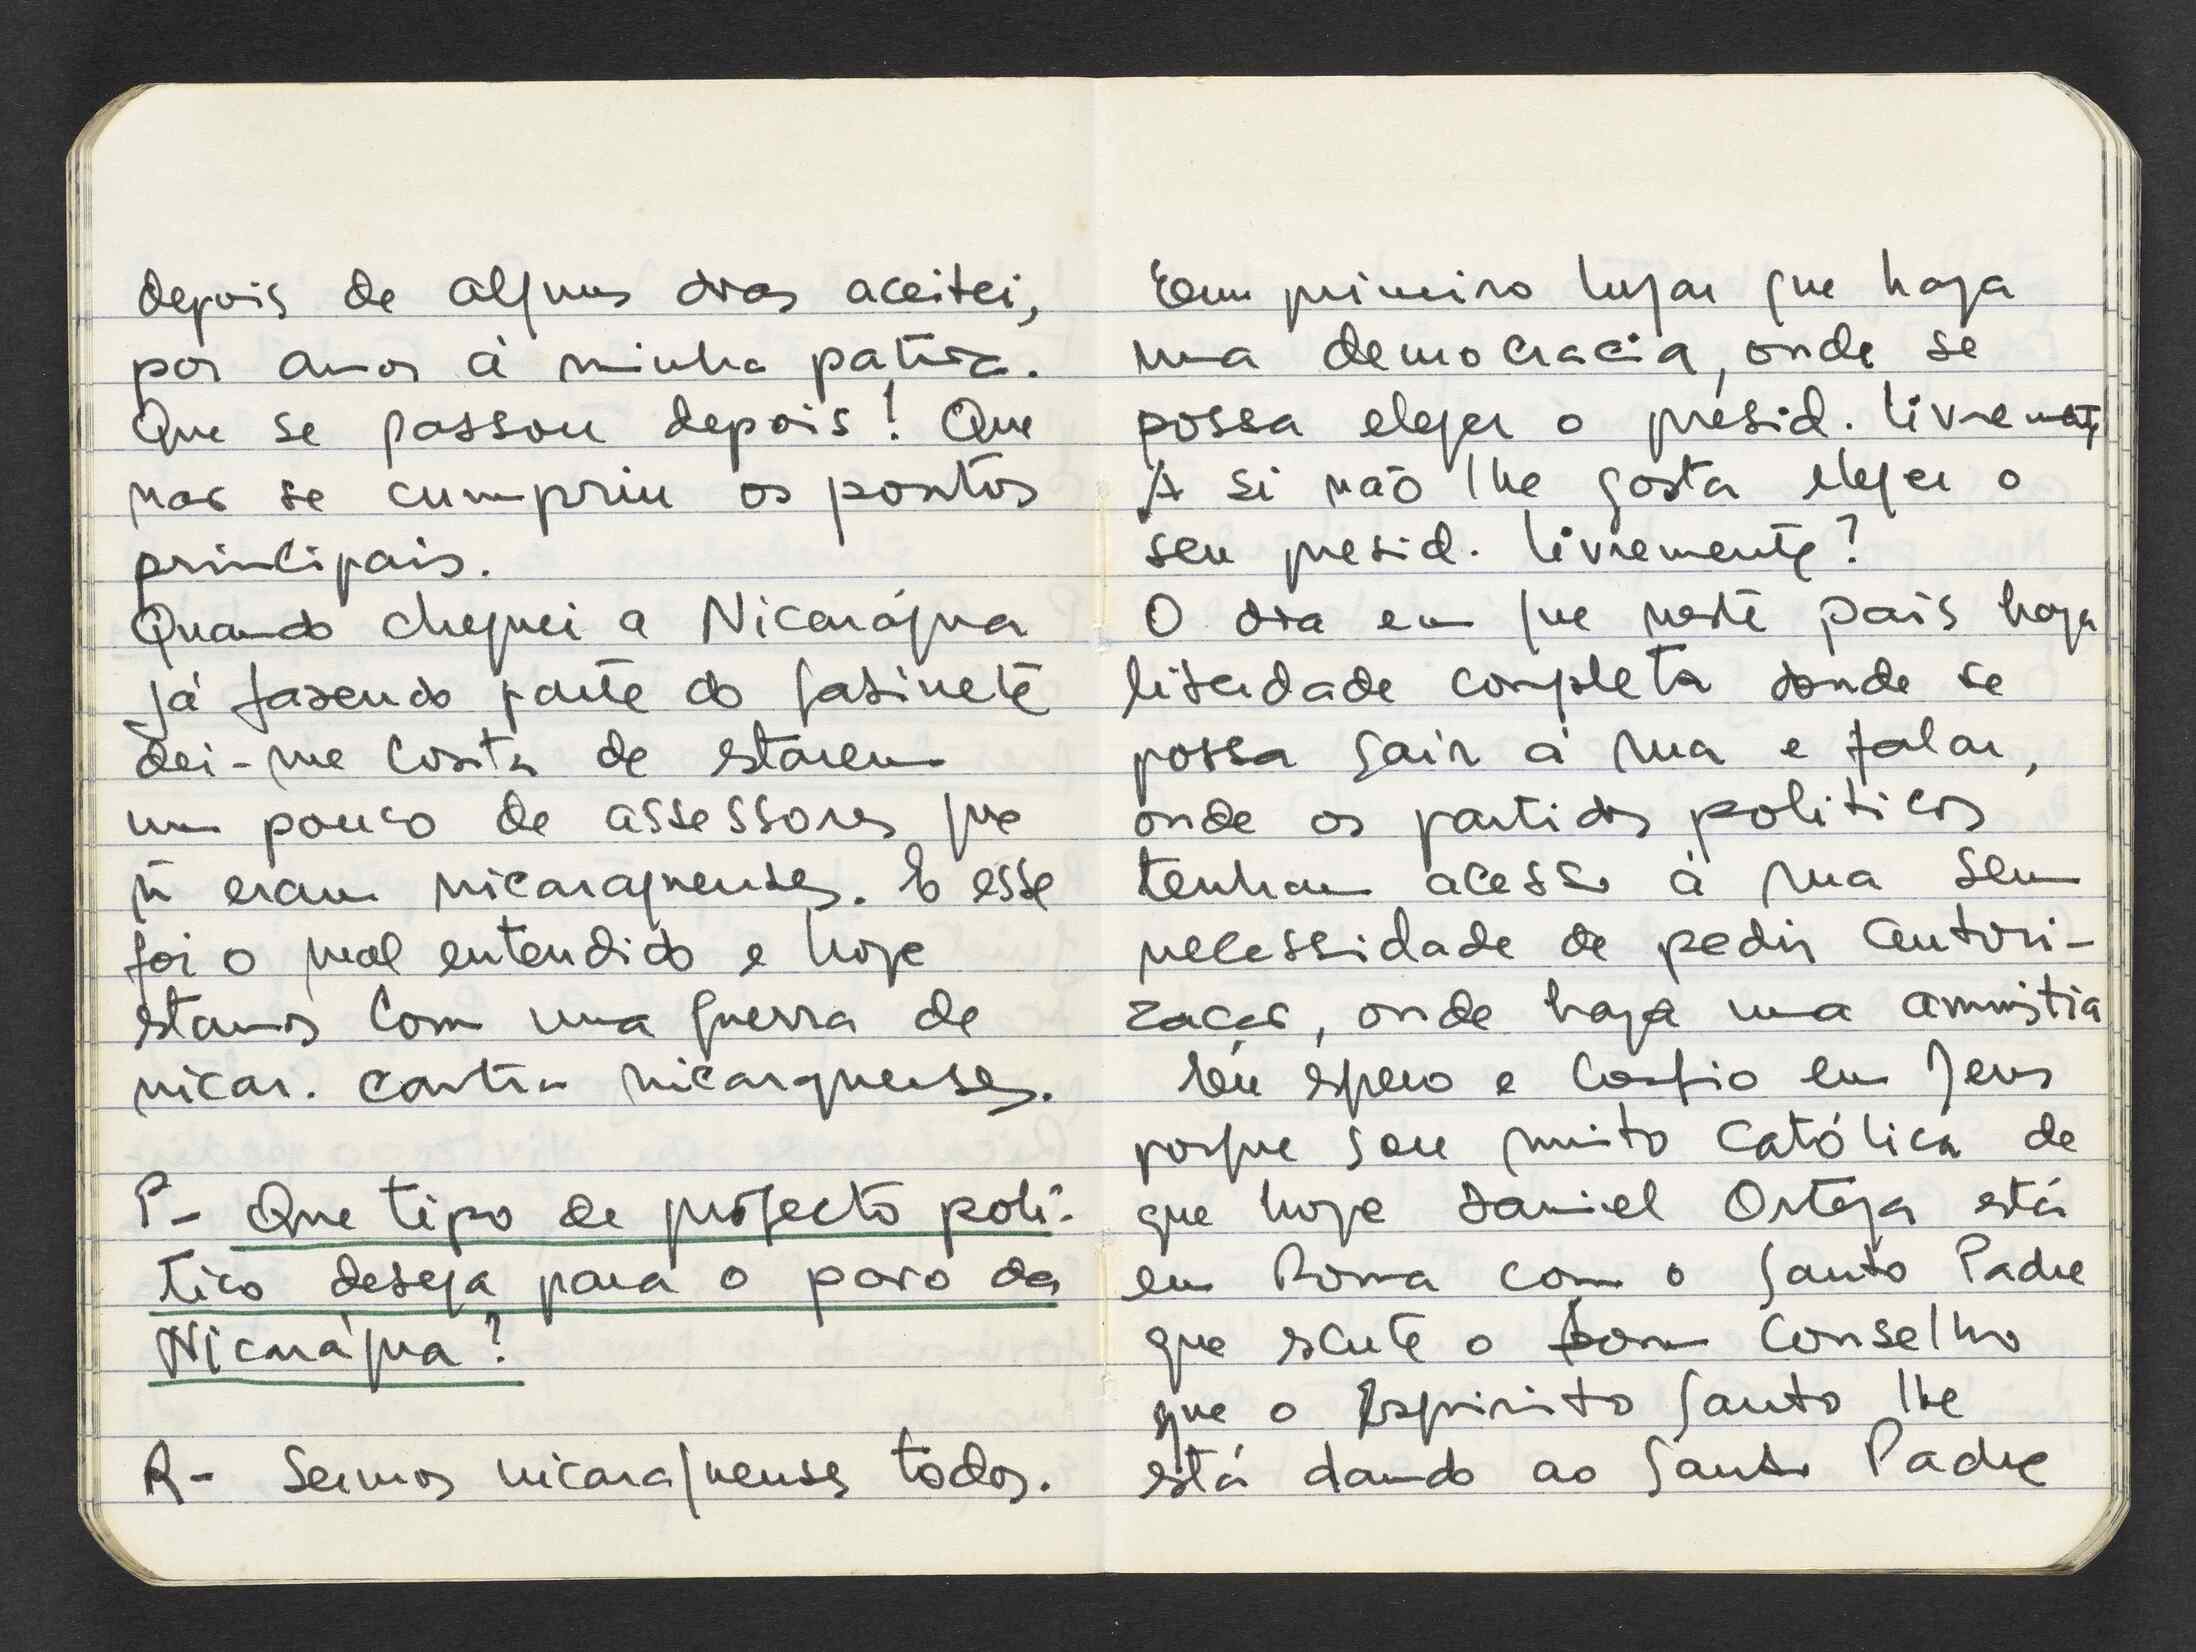 depois de alguns dias aceitei,
por amor à minha pátria.
Que se passou depois! Que
não se cumpriu os pontos
principais.
Quando cheguei a Nicarágua
já fazendo parte do gabinete
dei-me conta de estarem
um pouco de assessores que
ñ eram nicaraguenses. E esse
foi o mal entendido e hoje
estamos com uma guerra de
nicar. contra nicaraguenses.
P- Que tipo de projecto polí-
tico deseja para o povo da
Nicarágua?
R- Sermos nicaraguenses todos.
Em primeiro lugar que haja
uma democracia, onde se
possa eleger o presid. livremente
A si não lhe gosta eleger o
seu presid. livremente?
O dia em que neste país haja
liberdade completa donde se
possa sair à rua e falar,
onde os partidos politicos
tenham acesso à rua sem
necessidade de pedir autori-
zação, onde haja uma amnistia
Eu espero e confio em Deus
porque sou muito católica de
que hoje Daniel Ortega está
em Roma com o Santo Padre
que escute o bom conselho
que o Espirito Santo lhe
está dando ao Santo Padre